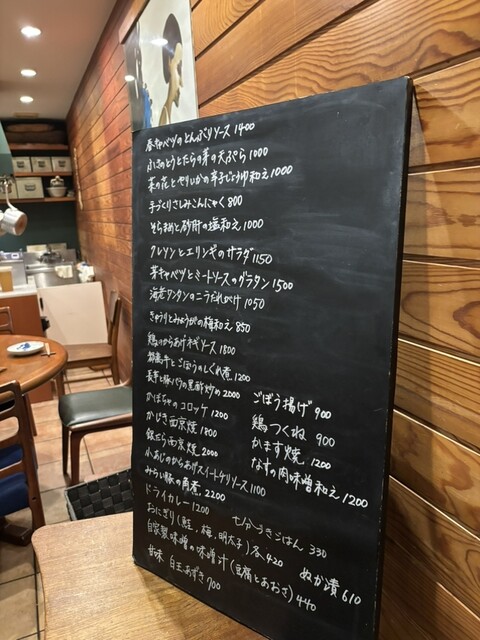 春キャベツのとんぶりソース 1400
ふきのとうとたらの芽の天ぷら 1000
菜の花とやりいかの辛子じょうゆ和え 1000
手づくりさしみこんにゃく 800
そら豆と砂肝の塩和え 1000
クレソンとエリンギのサラダ 1150
芽キャベツとミートソースのグラタン 1500
海老ワンタンのニラだれがけ 1050
きゅうりとみょうがの梅和え 850
鶏のからあげネギソース 1800
和牛とごぼうのしぐれ煮 1200
長芋と豚バラの黒酢炒め 2000
かぼちゃのコロッケ 1200
かじき西京焼 1800
銀だら西京焼 2000
小あじのからあげスイートチリソース 1100
みらい豚の角煮 2200
ドライカレー 1200
ごぼう揚げ 900
鶏つくね 900
かます焼 1200
なすの肉味噌和え 1200
七分づきごはん 330
おにぎり(鮭,梅,明太子)各420
ぬか漬 610
自家製味噌の味噌汁(豆腐とあおさ)440
甘味 白玉あずき 700